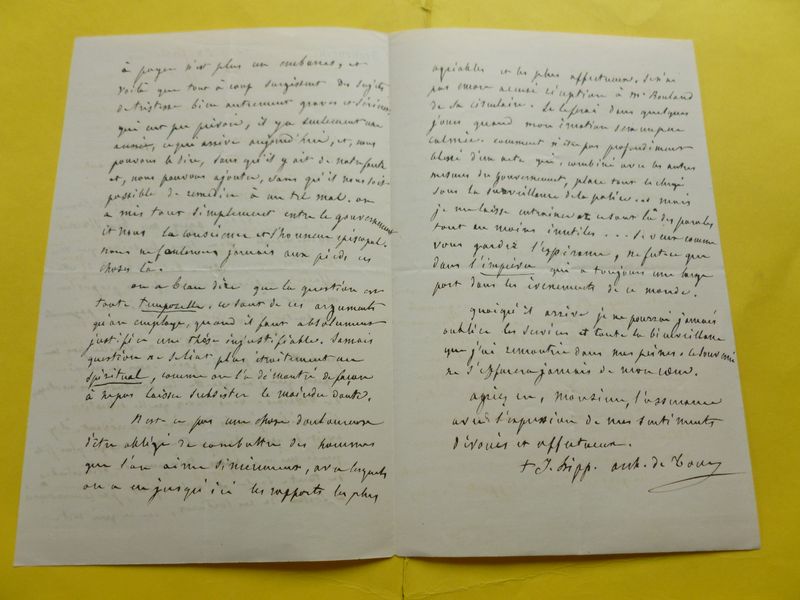 à payer n'est plus un embarras, et
voilà que tout à coup surgissent des sujets
de tristesse bien autrement graves et sérieux,
qui eut pu prévoir, il y a seulement une
année, ce qui arrive aujourd'hui, et, nous
pouvons le dire, sans qu'il y ait de notre faute
et, nous pouvons ajouter, sans qu'il nous soit
possible de remédier à un tel mal. on
a mis tout simplement entre le gouvernement
et nous la conscience et l'honneur épiscopal.
nous ne foulerons jamais aux pieds ces
choses là.
on a beau dire que la question est
toute temporelle, ce sont de ces arguments
qu'on emploie, quand il faut absolument
justifier une thèse injustifiable. Jamais
question ne se liait plus étroitement au
spirituel, comme on l'a démontré de façon
à ne pas laisser subsister le moindre doute.
N'est ce pas une chose douloureuse
d'être obligé de combattre des hommes
que l'on aime sincèrement, avec lesquels
on a eu jusqu'ici les rapports les plus
agréables et les plus affectueux. Je n'ai
pas encore accusé réception à Mr Rouland
de sa circulaire. Je le ferai dans quelques
jours quand mon émotion sera un peu
calmée. comment n'être pas profondément
blessé d'un acte qui, combiné avec les autres
mesures du gouvernement, place tout le clergé
sous la surveillance de la police. mais
je me laisse entrainer et ce sont là des paroles
tout au moins inutiles... Je veux comme
vous garder l'espérance, ne fut ce que
dans l'imprévu qui a toujours une large
part dans les évènements de ce monde.
quoiqu'il arrive je ne pourrai jamais
oublier les services et toute la bienveillance
que j'ai rencontrée dans mes peines. le souvenir
ne s'effacera jamais de mon cœur.
agréez, Monsieur, l'assurance
avec l'expression de mes sentiments
dévoués et affectueux.
+ J. hipp. arch. de Tours